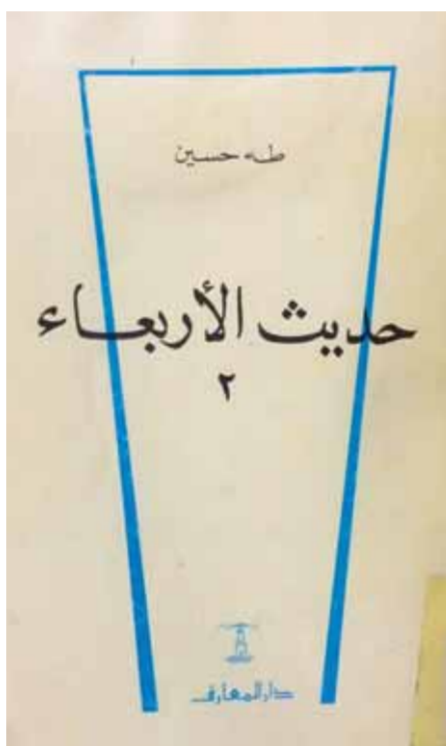 طه حسين
حديث الأربعاء
٢
دار المعارف